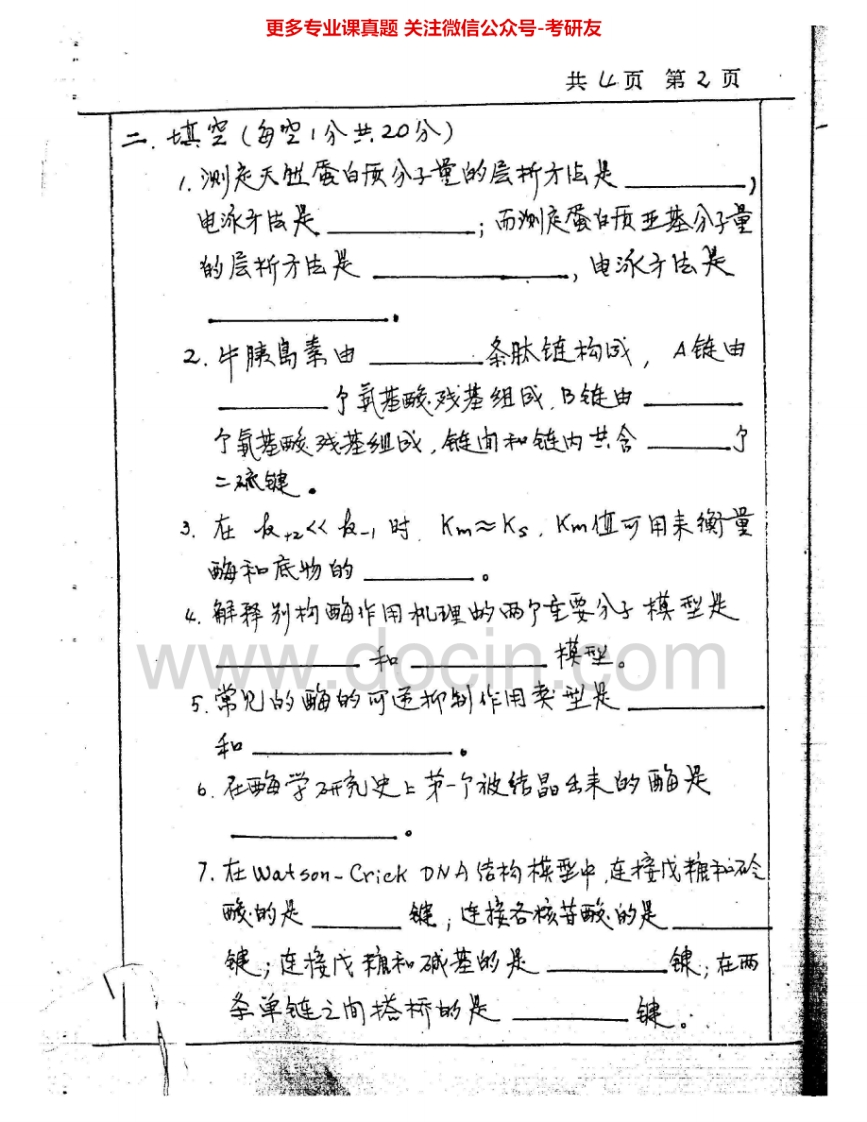 更多专业课真题 关注微信公众号-考研友
共 4 页 第 2 页
二. 填空(每空1分共20分)
1. 测定天然蛋白质分子量的层析方法是__________,
电泳方法是__________; 而测定蛋白质亚基分子量
的层析方法是__________, 电泳方法是
__________.
2. 牛胰岛素由__________条肽链构成, A链由
__________个氨基酸残基组成, B链由__________
个氨基酸残基组成, 链间和链内共含__________个
二硫键。
3. 在 k₊₂<< k₋₁ 时, Km≈Ks, Km值可用来衡量
酶和底物的__________。
4. 解释别构酶作用机理的两个重要分子模型是
__________和__________模型。
www.docin.com
5. 常见的酶的可逆抑制作用类型是__________
和__________。
6. 在酶学研究史上第一个被结晶出来的酶是
__________。
7. 在Watson-Crick DNA结构模型中, 连接戊糖和磷
酸的是__________键; 连接各核苷酸的是__________
键; 连接戊糖和碱基的是__________键; 在两
条单链之间搭桥的是__________键。